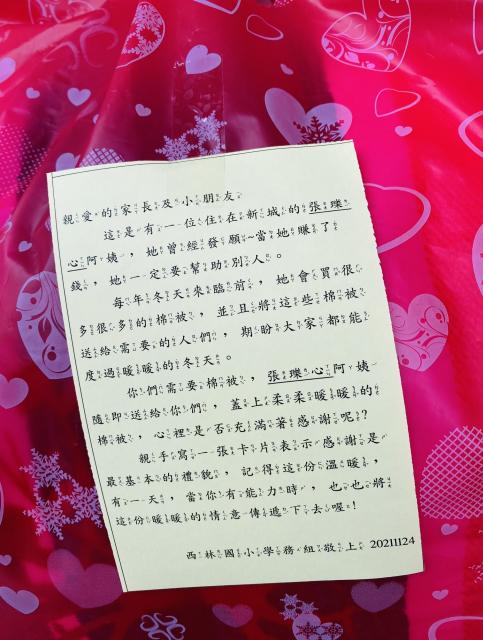 親愛的家長及小朋友
這是有一位住在新城的張瓅
心阿姨，她曾經發願~當她賺了
錢，她一定要幫助別人。
每年冬天來臨前，她會買很
多很多的棉被，並且將這些棉被
送給需要的人們，期盼大家都能
度過暖暖的冬天。
你們需要棉被，張瓅心阿姨
隨即送給你們，蓋上柔柔暖暖的
棉被，心裡是否充滿著感謝呢?
親手寫一張卡片表示感謝是
最基本的禮貌，記得這份溫暖，
有一天，當你有能力時，也也將
這份暖暖的情意傳遞下去喔!
西林國小學務組敬上 20211124